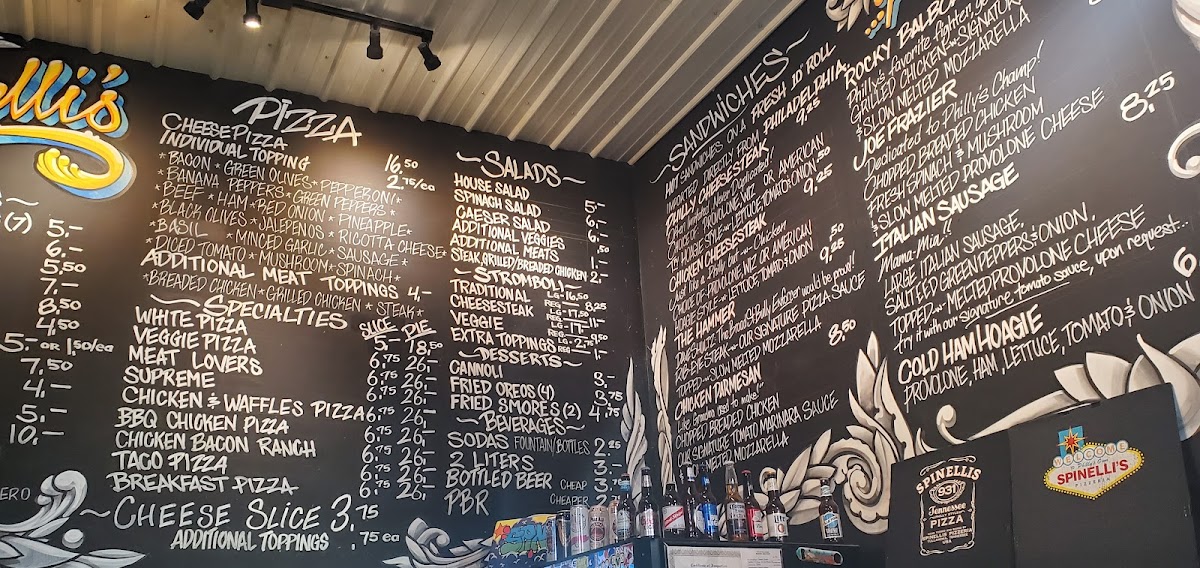 elli's
(7) 5,-
6,-
5,50
7,-
8,50
4,50
5,- OR 1,50/ea
7,50
4,-
5,-
10,-
ERO
PIZZA
CHEESE PIZZA 16,50
INDIVIDUAL TOPPING 2,75/ea
*BACON * GREEN OLIVES * PEPPERONI*
*BANANA PEPPERS * GREEN PEPPERS *
BEEF * HAM * RED ONION * PINEAPPLE*
*BLACK OLIVES * JALEPENOS * RICOTTA CHEESE*
*BASIL * MINCED GARLIC * SAUSAGE *
*DICED TOMATO * MUSHROOM * SPINACH*
ADDITIONAL MEAT TOPPINGS 4,-
*BREADED CHICKEN * GRILLED CHICKEN * STEAK*
~SPECIALTIES
SLICE PIE
WHITE PIZZA 5,- 18,50
VEGGIE PIZZA 6,75 26,-
MEAT LOVERS 6,75 26,-
SUPREME 6,75 26,-
CHICKEN & WAFFLES PIZZA 6,75 26,-
BBQ CHICKEN PIZZA 6,75 26,-
CHICKEN BACON RANCH 6,75 26,-
TACO PIZZA 6,75 26,-
BREAKFAST PIZZA 6,75 26,-
~CHEESE SLICE 3,75
ADDITIONAL TOPPINGS ,75 ea
~SALADS~
HOUSE SALAD 5,-
SPINACH SALAD 6,-
CAESER SALAD 6,-
ADDITIONAL VEGGIES ,50
ADDITIONAL MEATS 1,-
STEAK, GRILLED/BREADED CHICKEN 2,-
~STROMBOLI~
TRADITIONAL LG-16,50
REG-8,25
CHEESESTEAK LG-17,50
REG-11,-
VEGGIE LG-17,-
REG-9,50
EXTRA TOPPINGS LG-2,75
REG-1,-
~DESSERTS~
CANNOLI 3,-
FRIED OREOS (4) 3,75
FRIED SMORES (2) 4,75
~BEVERAGES~
SODAS FOUNTAIN/BOTTLES 2,25
2 LITERS 3,-
BOTTLED BEER CHEAP 3,
PBR CHEAPER 2,
~SANDWICHES~
HOT SANDWICHES ON A FRESH 10" ROLL
DIRECTLY FROM PHILADELPHIA,
PHILLY CHEESESTEAK 9,25
CHOICE OF PROVOLONE, WIZ OR AMERICAN
TRY HOAGIE STYLE LETTUCE, TOMATO & ONION ,50
CHICKEN CHEESESTEAK 9,25
Just like a Philly but Chicken
CHOICE OF PROVOLONE, WIZ OR AMERICAN
HOAGIE STYLE LETTUCE, TOMATO & ONION ,50
THE HAMMER 9,25
Dave Schultz, The Broad St Bully Enforcer would be proud!
RIB-EYE STEAK OUR SIGNATURE PIZZA SAUCE
TOPPED SLOW MELTED MOZZARELLA
CHICKEN PARMESAN 8,50
Like Grandma used to make!
CHOPPED BREADED CHICKEN
OUR SIGNATURE TOMATO MARINARA SAUCE
MELTED MOZZARELLA
ROCKY BALBOA
Philly's favorite fighter,
GRILLED CHICKEN SIGNATURE
& SLOW MELTED MOZZARELLA
JOE FRAZIER 8,25
Dedicated to Philly's Champ!
CHOPPED BREADED CHICKEN
FRESH SPINACH & MUSHROOM
& SLOW MELTED PROVOLONE CHEESE
ITALIAN SAUSAGE 8,25
Mama-Mia!!
LARGE ITALIAN SAUSAGE,
SAUTEED GREEN PEPPERS & ONION,
TOPPED MELTED PROVOLONE CHEESE
try it with our Signature tomato sauce, upon request..
COLD HAM HOAGIE 6
PROVOLONE, HAM, LETTUCE, TOMATO & ONION
SPINELLIS
931
Tennessee
PIZZA
SPINELLIS PIZZERIA
WELCOME
SPINELLI'S
PIZZERIA